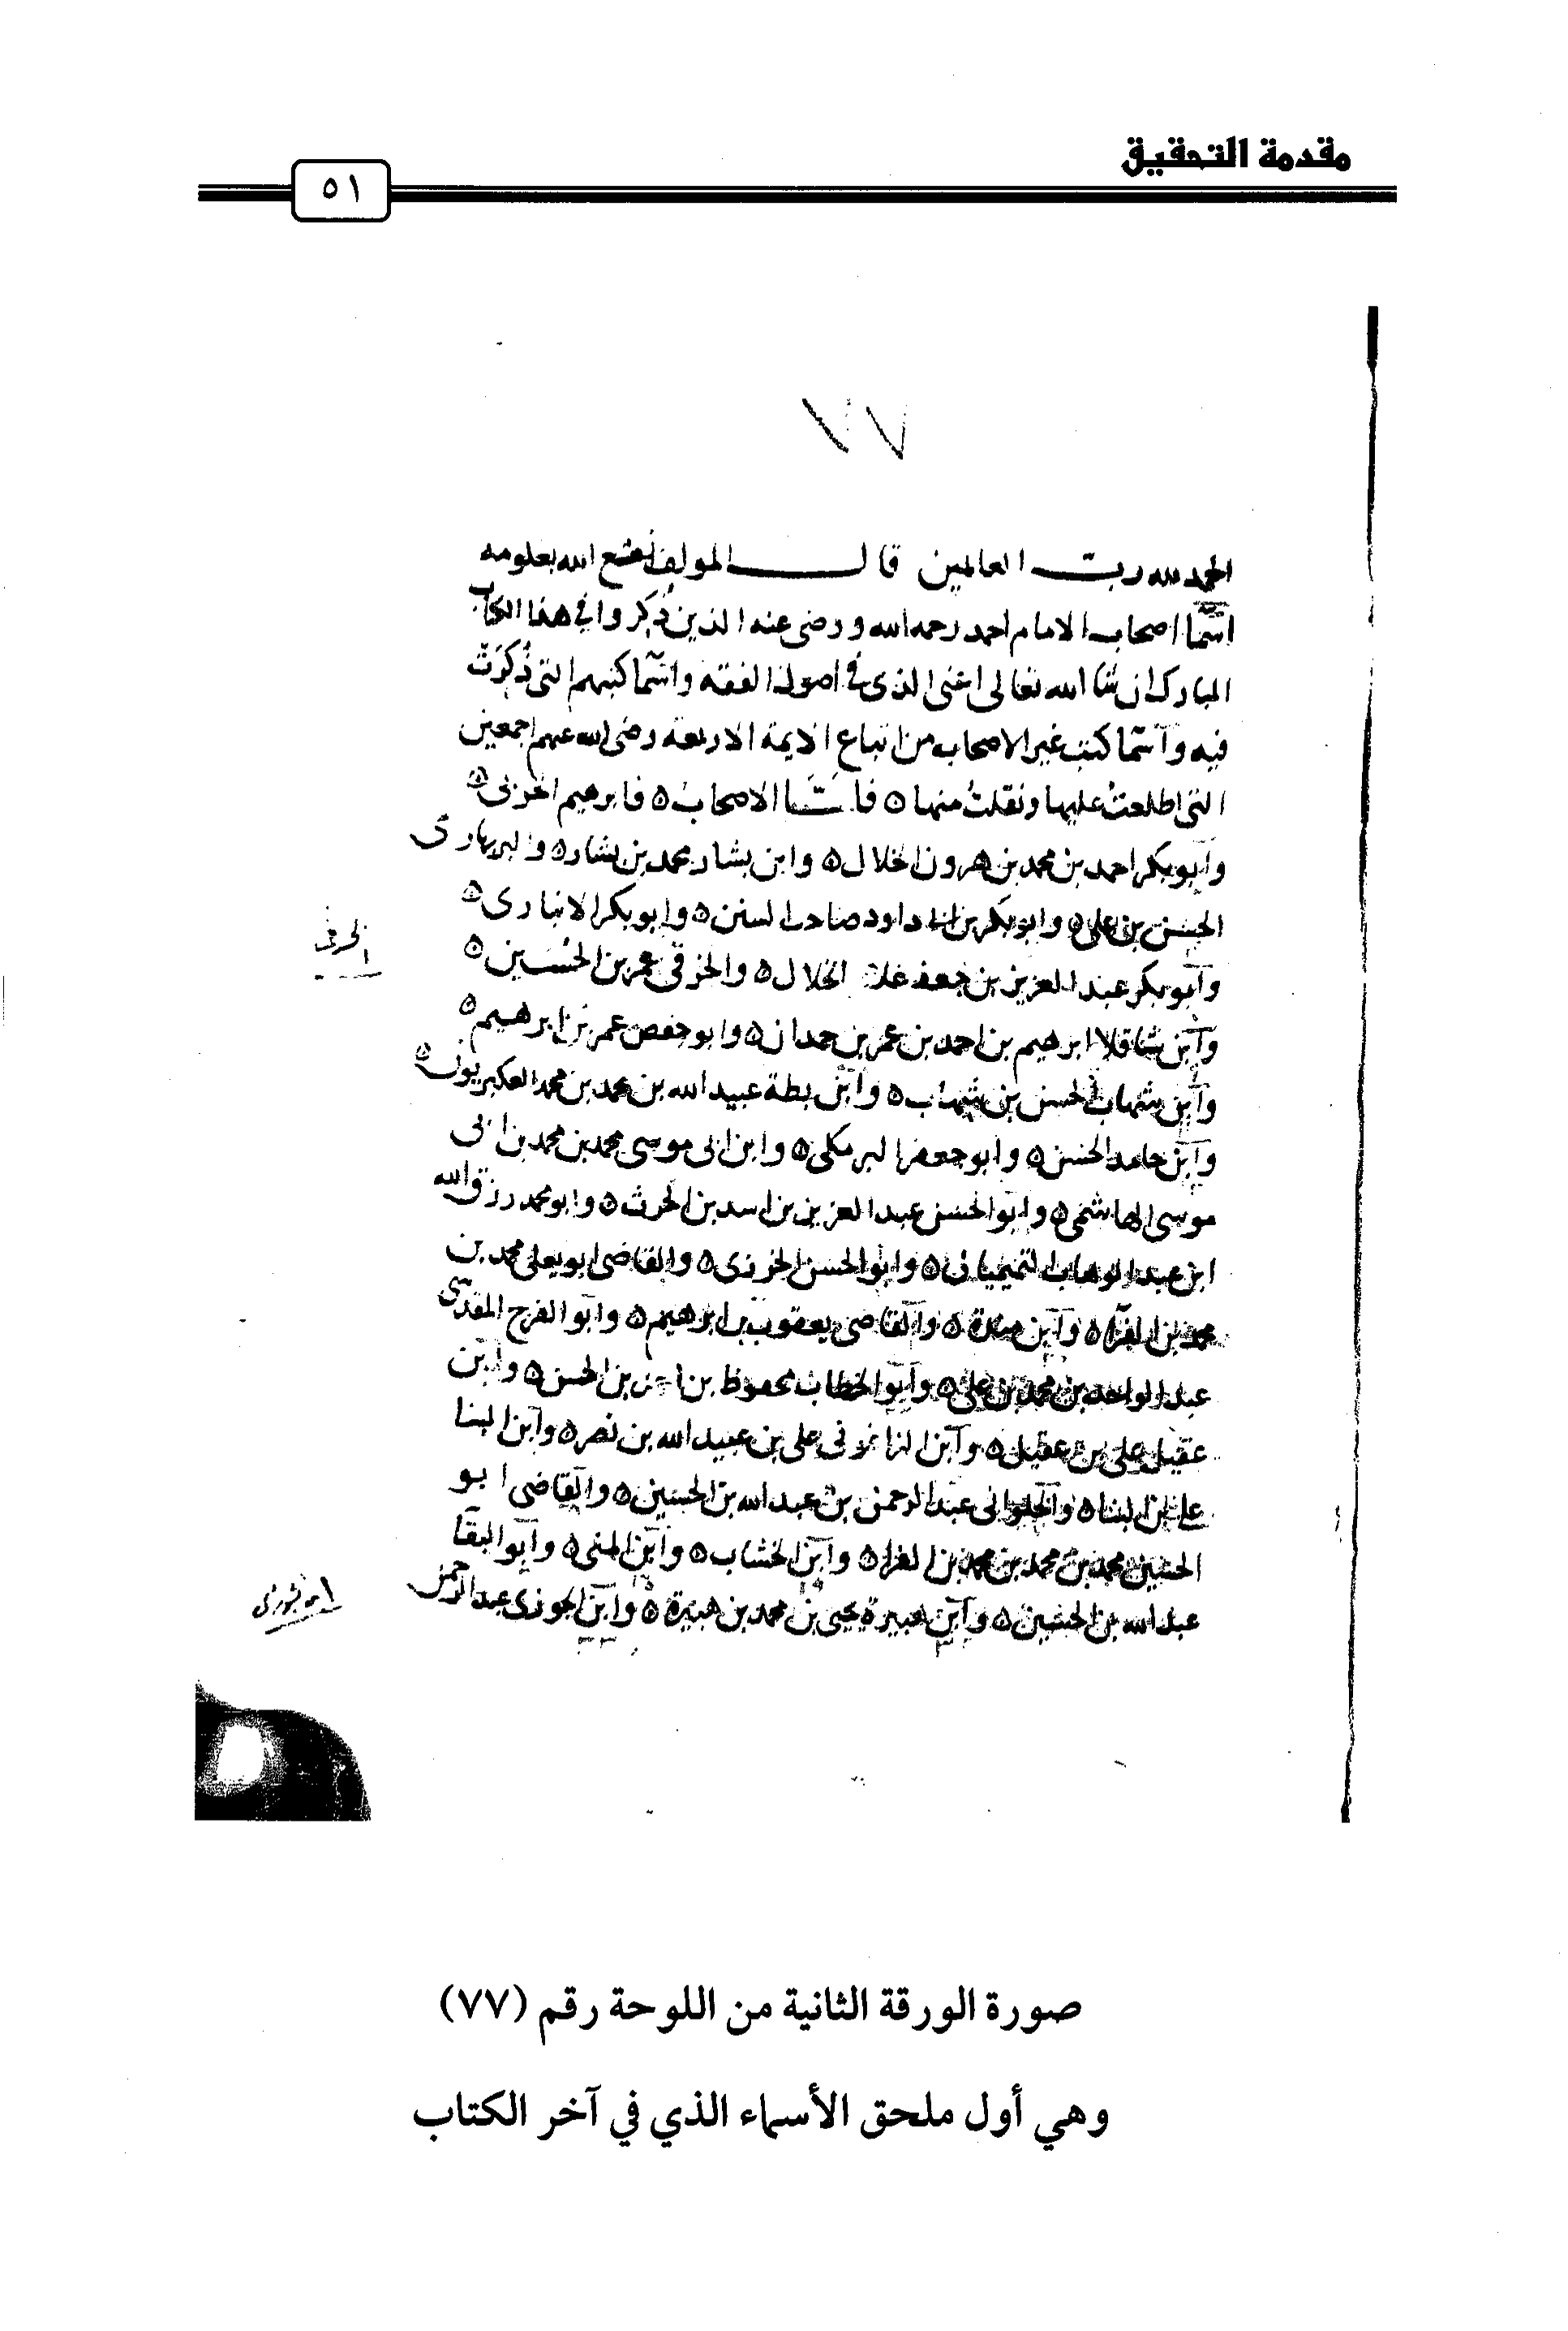 مقدمة التحقيق
٥١
٧٧
الحمد لله رب العالمين قال المولف نفع الله بعلومه
اسما اصحاب الامام احمد رحمه الله ورضى عنه الذين ذكروا في هذا الكتاب
المبارك ان شا الله تعالى اعنى الذى في اصول الفقه واسما كتبهم التى ذكرت
فيه واسما كتب غير الاصحاب من اتباع الايمة الاربعة رضى الله عنهم اجمعين
التى اطلعت عليها ونقلت منها ٥ فا الاصحاب ٥ فابرهيم الحربى ٥
وابو بكر احمد بن محمد بن هرون الخلال ٥ وابن بشار محمد بن بشار ٥ والبربهارى
الحسن بن على ٥ وابو بكر بن ابى داود صاحب السنن ٥ وابو بكر الانبارى ٥
وابو بكر عبد العزيز بن جعفر غلام الخلال ٥ والخرقى عمر بن الحسين ٥
الخرقى
وابن شاقلا ابرهيم بن احمد بن عمر بن حمدان ٥ وابو حفص عمر بن ابرهيم ٥
وابن شهاب الحسن بن شهاب ٥ وابن بطة عبيد الله بن محمد بن محمد العكبريون ٥
وابن حامد الحسن ٥ وابو جعفر البرمكى ٥ وابن ابى موسى محمد بن محمد بن ابى
موسى الهاشمى ٥ وابو الحسن عبد العزيز بن اسد بن الحرث ٥ وابو محمد رزق الله
ابن عبد الوهاب التميميان ٥ وابو الحسن الخرزى ٥ والقاضى ابو يعلى محمد بن
محمد بن الفرا ٥ وابن مندة ٥ والقاضى يعقوب بن ابرهيم ٥ وابو الفرج المقدسى
عبد الواحد بن محمد بن على ٥ وابو الخطاب محفوظ بن احمد بن الحسن ٥ وابن
عقيل على بن عقيل ٥ وابن الزاغونى على بن عبيد الله بن نصر ٥ وابن البنا
على بن البنا ٥ والحلوانى عبد الرحمن بن عبد الله بن الحسين ٥ والقاضى ابو
الحسين محمد بن محمد بن محمد بن الفرا ٥ وابن الخشاب ٥ وابن المنى ٥ وابو البقا
عبد الله بن الحسين ٥ وابن هبيرة يحيى بن محمد بن هبيرة ٥ وابن الجوزى عبد الرحمن
صورة الورقة الثانية من اللوحة رقم (٧٧)
وهي أول ملحق الأسماء الذي في آخر الكتاب